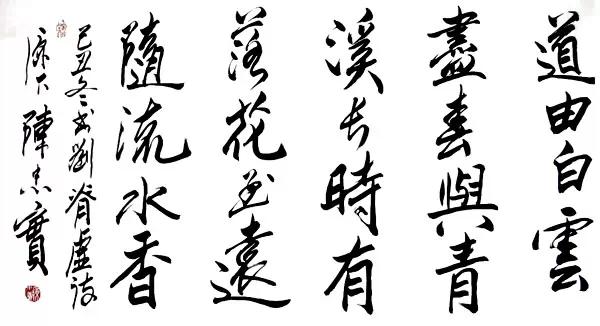 道由白雲
盡春與青
溪長時有
落花至遠
隨流水香
己丑冬書劉脊虛詩
原下陳忠實